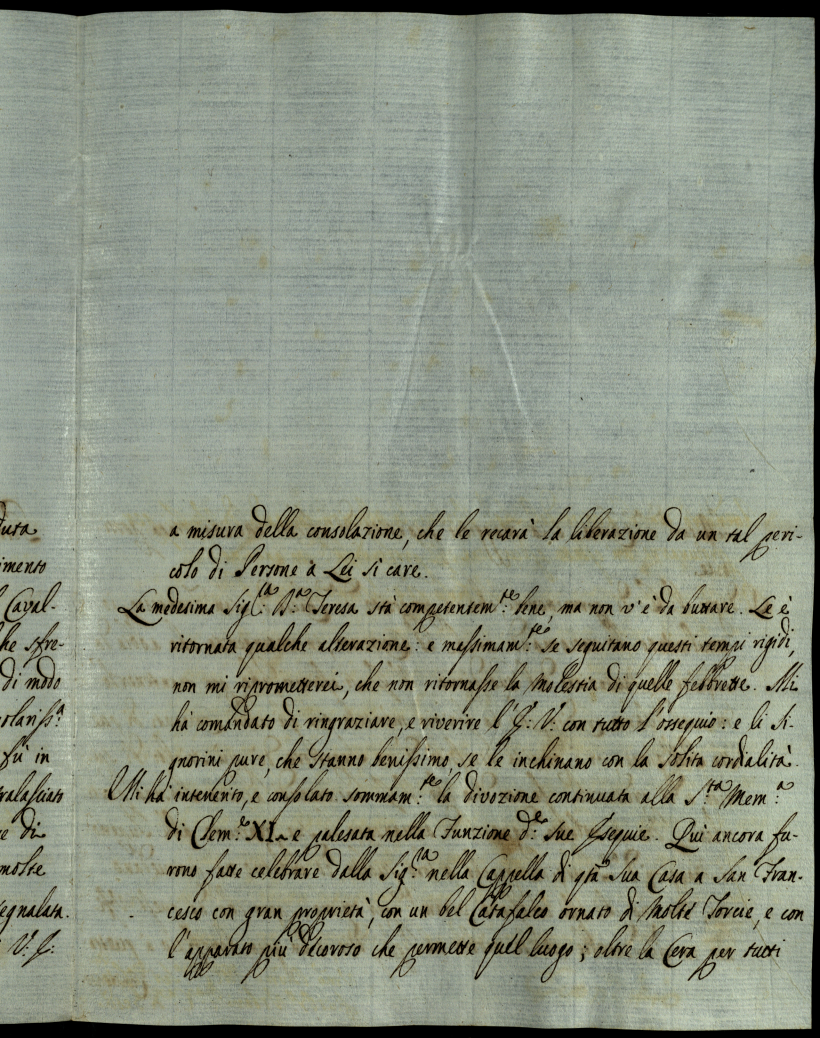 duta
imento
Caval-
he sfre-
di modo
colariss.a
fù in
ralasciato
e di
molte
egnalata.
V: J:
a misura della consolazione, che le recarà la liberazione da un tal peri-
colo di Persone à Lei sì care.
La medesima Sig.ra D.na Teresa stà competentem.te bene, ma non v'è da buttare. Le è
ritornata qualche alterazione: e massimam.te se seguitano questi tempi rigidi,
non mi riprometterei, che non ritornasse la molestia di quelle febbrette. Mi
hà comandato di ringraziare, e riverire l' V: con tutto l'ossequio: e li Si-
gnorini pure, che stanno benissimo, se le inchinano con la solita cordialità.
Mi hà intenerito, e consolato sommam.te la divozione continuata alla S.ta Mem.a
di Clem.e XI. e palesata nella Funzione d.le sue Esequie. Quì ancora fu-
rono fatte celebrare dalla Sig.ra nella Cappella di q.ta Sua Casa a San Fran-
cesco con gran proprietà, con un bel Catafalco ornato di molte Torcie, e con
l'apparato più decoroso che permette quel luogo; oltre la Cera per tutti